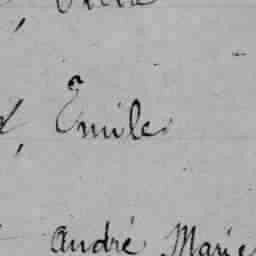 Emile
André Marie